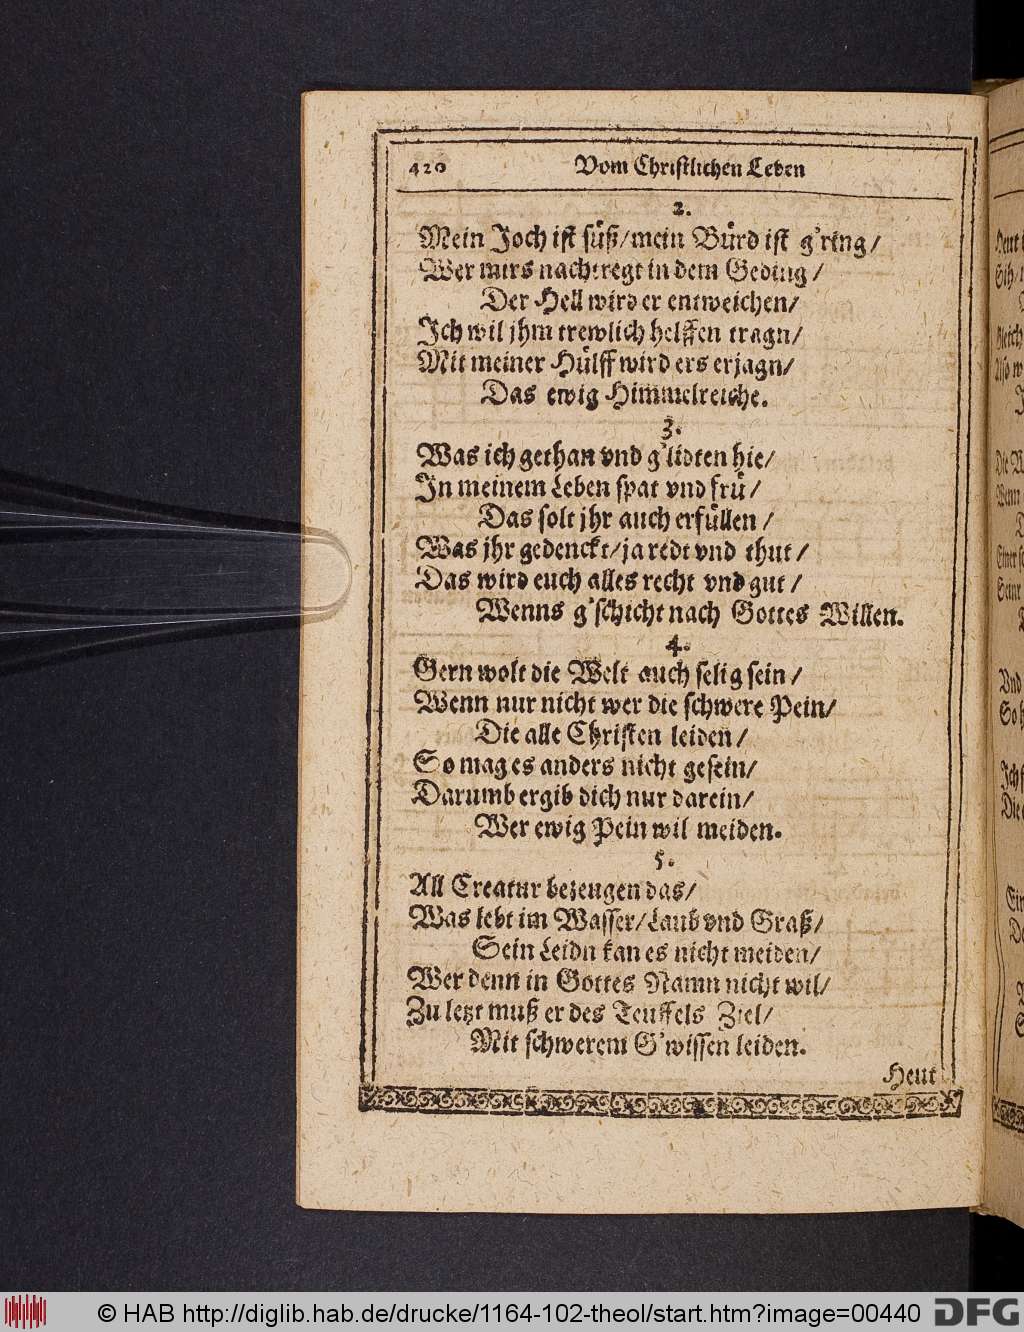 420 Vom Christlichen Leben
2.
Mein Joch ist süß/mein Bürd ist g'ring/
Wer mirs nachtregt in dem Geding/
Der Hell wird er entweichen/
Ich wil jhm trewlich helffen tragn/
Mit meiner Hülff wird ers erjagn/
Das ewig Himmelreiche.
3.
Was ich gethan vnd g'lidten hie/
In meinem Leben spat vnd frü/
Das solt jhr auch erfüllen/
Was jhr gedenckt/ja redt vnd thut/
Das wird euch alles recht vnd gut/
Wenns g'schicht nach Gottes Willen.
4.
Gern wolt die Welt auch selig sein/
Wenn nur nicht wer die schwere Pein/
Die alle Christen leiden/
So mag es anders nicht gesein/
Darumb ergib dich nur darein/
Wer ewig Pein wil meiden.
5.
All Creatur bezeugen das/
Was lebt im Wasser/Laub vnd Graß/
Sein Leidn kan es nicht meiden/
Wer denn in Gottes Namn nicht wil/
Zu letzt muß er des Teuffels Ziel/
Mit schwerem G'wissen leiden.
Heut
© HAB http://diglib.hab.de/drucke/1164-102-theol/start.htm?image=00440
DFG